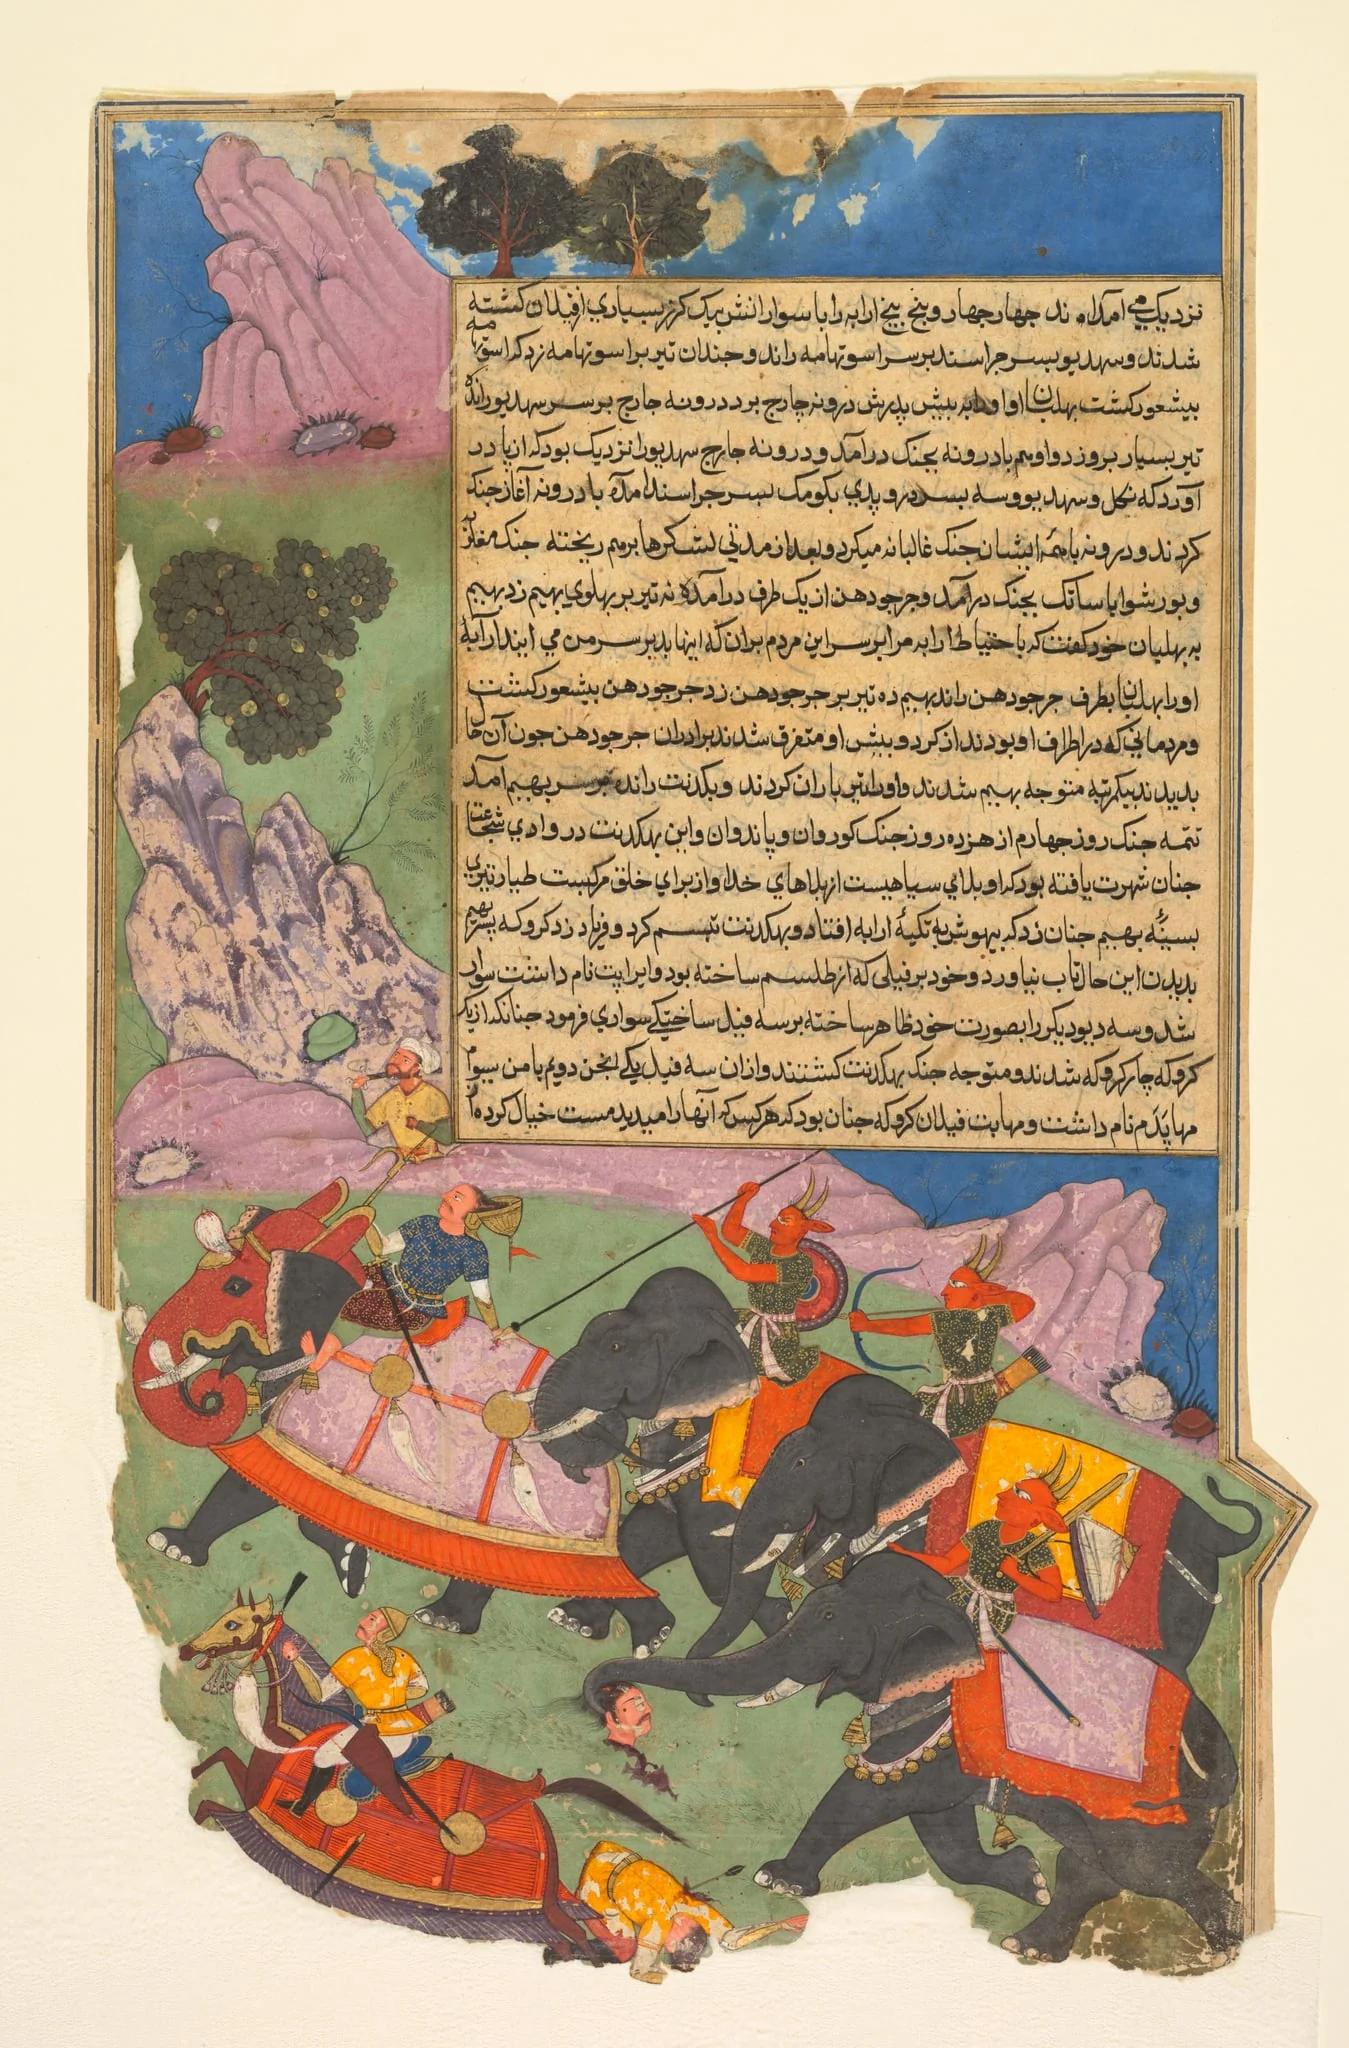 نزدیک می آمدند جهار جهار و پنج پنج ارابه را با سوارانش بیک کرز بسیاری از فیلان کشته
شدند و سهدیو بسر جراسند بر سر اسوتهامه راند و جندان تیر بر اسوتهامه زد که اسوتهامه
بیشعور کشت بهلبان او ارابه پیش پدرش درونه چارج برد درونه جارج بر سر سهدیو رانده
تیر بسیار برو زد و او هم با درونه بجنک درآمد و درونه جارج سهدیو را نزدیک بود که از پا در
آورد که نکل و سهدیو و سه پسر دروپدی بکومک بسر جراسند آمده با درونه آغاز جنک
کردند و درونه با همه ایشان جنک غالبانه میکرد و بعد از مدتی لشکرها برهم ریخته جنک مغلوبه
و بورشوا با ساتک بجنک درآمد و جرجودهن از یک طرف درآمده نه تیر بر پهلوی بهیم زد بهیم
به بهلبان خود کفت که با حتیاط ارابه مرا بر سر این مردم بران که اینها بدیر سر من می آیند ارابه
او را بهلبان بطرف جرجودهن راند بهیم ده تیر بر جرجودهن زد جرجودهن بیشعور کشت
و مردمانی که در اطراف او بودند از کرد و پیش او متفرق شدند برادران جرجودهن جون آن حال
بدیدند بیکمرتبه متوجه بهیم شدند و او را تیر باران کردند و بکدنت رانده بر سر بهیم آمد
تتمه جنک روز جهارم از هزده روز جنک کوروان و پاندوان و این بهکدنت در وادی شجاعت
جنان شهرت یافته بود که او بلائی سیاهیست از بلاهای خدا و از برای خلق مرکبیست طیار تیری
بسینه بهیم جنان زد که بیهوش به تکیه ارابه افتاد و بهکدنت تبسم کرد و فریاد زد کروکه پسر بهیم
بدیدن این حال تاب نیاورد و خود بر فیلی که از طلسم ساخته بود و ایراپت نام داشت سوار
شد و سه دیو دیکر را بصورت خود ظاهر ساخته بر سه فیل ساختکی سواری فرمود جنانکه از یک
کروکه چار کروکه شدند و متوجه جنک بهکدنت کشتند و از آن سه فیل یکی انجن دویم بامن سیوم
مهاپدم نام داشت و مهابت فیلان کروکه جنان بود که هر کس که آنها را میدید مست خیال کرده از